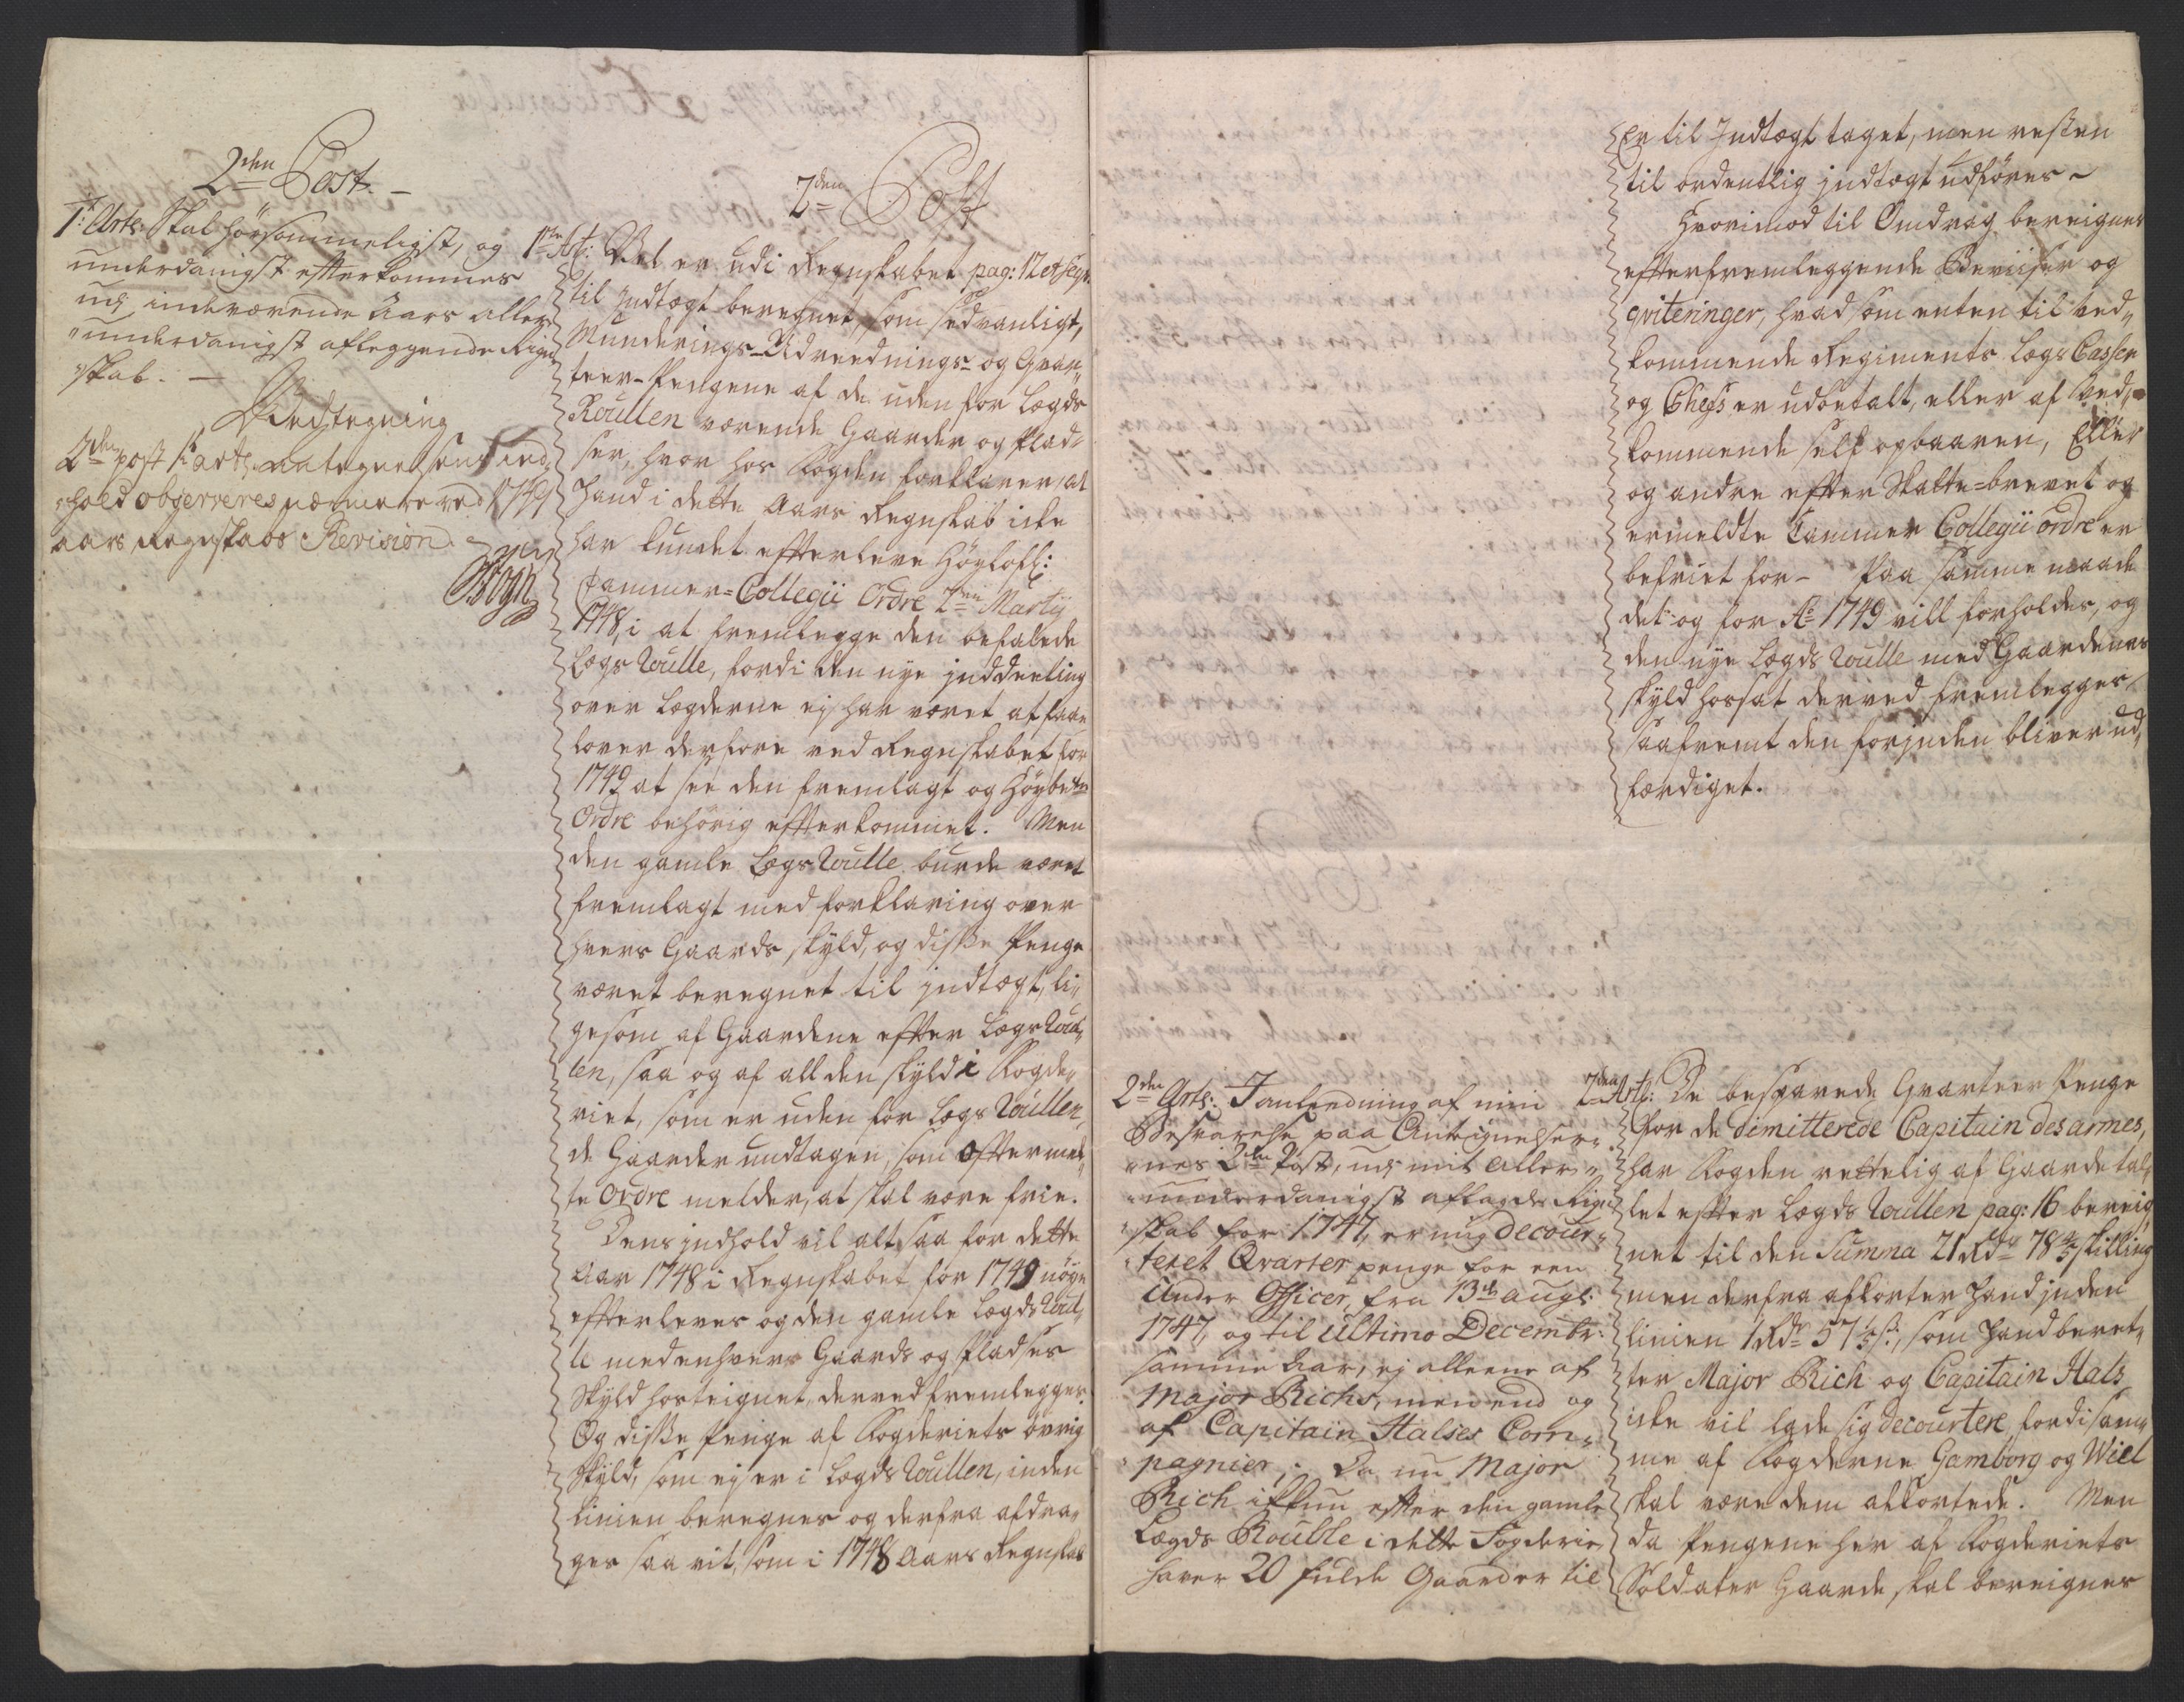 2den Post.
1: Artl: Skal hørsommeligst, og
underdanigst efterkommes
ved indeværende Aars aller-
"underdanigst afleggende Regn
"skab. —
Vedtegning
2den post 1: art: antegnelsens ind-
"hold observeres nærmere ved 1749
aars Regnskabs Revision.
2den Post
1ste Art: Vel er udi Regnskabet pag: 12 et seqv:
til Indtægt beregnet, som sædvanligt,
Munderings-Udreednings- og Qvar-
teer-Pengene af de uden for Lægds
Roullen værende Gaarder og Plad-
ser, hvor hos Fogden forklarer, at
Hand i dette Aars Regnskab icke
har kundet efterleve Høylofl:
Cammer-Collegii Ordre 2den Martij
1748, i at fremlegge den befalede
Lægs Roulle, fordi den nye inddeeling
over Lægderne ej har været at faae
lover derfore ved Regnskabet for
1749 at see den fremlagt og Høybete
Ordre behørig efterkommet. Men
den gamle Lægs Roulle burde været
fremlagt med forklaring over
hvers Gaards skyld, og disse Penge
været beregnet til indtægt, li-
gesom af Gaardene efter Lægs Roul-
len, saa og af all den skyld i Fogde-
riet, som er uden for Lægs Roullen,
de Gaarder undtagen, som efftermel-
te Ordre melder, at skal være frie.
Dens indhold vil alt saa for dette
Aar 1748 i Regnskabet for 1749 nøye
efterleves og den gamle Lægds Roul-
le med enhvers Gaards og Pladses
Skyld hosteignet, derved fremlegges.
Og disse Penge af Fogderiets øvrig
Skyld, som ej er i Lægds Roullen, inden
Linien beregnes og derfra afdra-
ges saa vit, som i 1748 Aars Regnskab
er til Indtægt taget, men resten
til ordentlig indtægt udføres ~
Hvorimod til Omdrag bereignes
efter fremleggende Beviiser og
qviteringer, hvad som enten til ved-
kommende Regiments Lægs Casser
og Chefs er udbetalt, eller af Ved-
kommende self opbaaren, Eller
og andre efter Skatte-brevet og
ermeldte Cammer Collegii ordre er
befriet for- Paa samme maade
det og for Ao 1749 vill forholdes, og
den nye Lægds Roulle med Gaardenes
skyld hossat derved fremlegges
saafremt den forinden bliver ud-
færdiget.
2den Artl: I anledning af min
Besvarelse paa Antegnelser-
"nes 2den Post, ved mit aller-
"underdanigst aflagde Regn
"skab for 1747, er mig decour-
"teret Qvarter penge for een
Under Officer, fra 13de augl:
1747, og til ultimo Decembr:
samme Aar, ej alleene af
Major Richs, men end og
af Capitain Halses Com-
"pagnier; Da nu Major
Rich ickun efter den gamle
Lægds Roulle i dette Fogderie
haver 20 fulde Gaarder til
2den Art: De besparede Qvarteer Penge
for de dimitterede Capitain des armes,
har Fogden rettelig af Gaardetal-
let efter Lægds Roullen pag: 16 bereig-
net til den Summa 21 Rdr 78 2/5 skilling
men derfra afkorter Hand inden
linien 1 Rdr 57 1/5 s:, som Hand beret-
ter Major Rich og Capitain Hals
icke vil lade sig decourtere, fordi sam-
me af Fogderne Gamborg og Wiel
skal være dem afkortede. Men
da Pengene her af Fogderiets
Soldater Gaarde skal bereignes